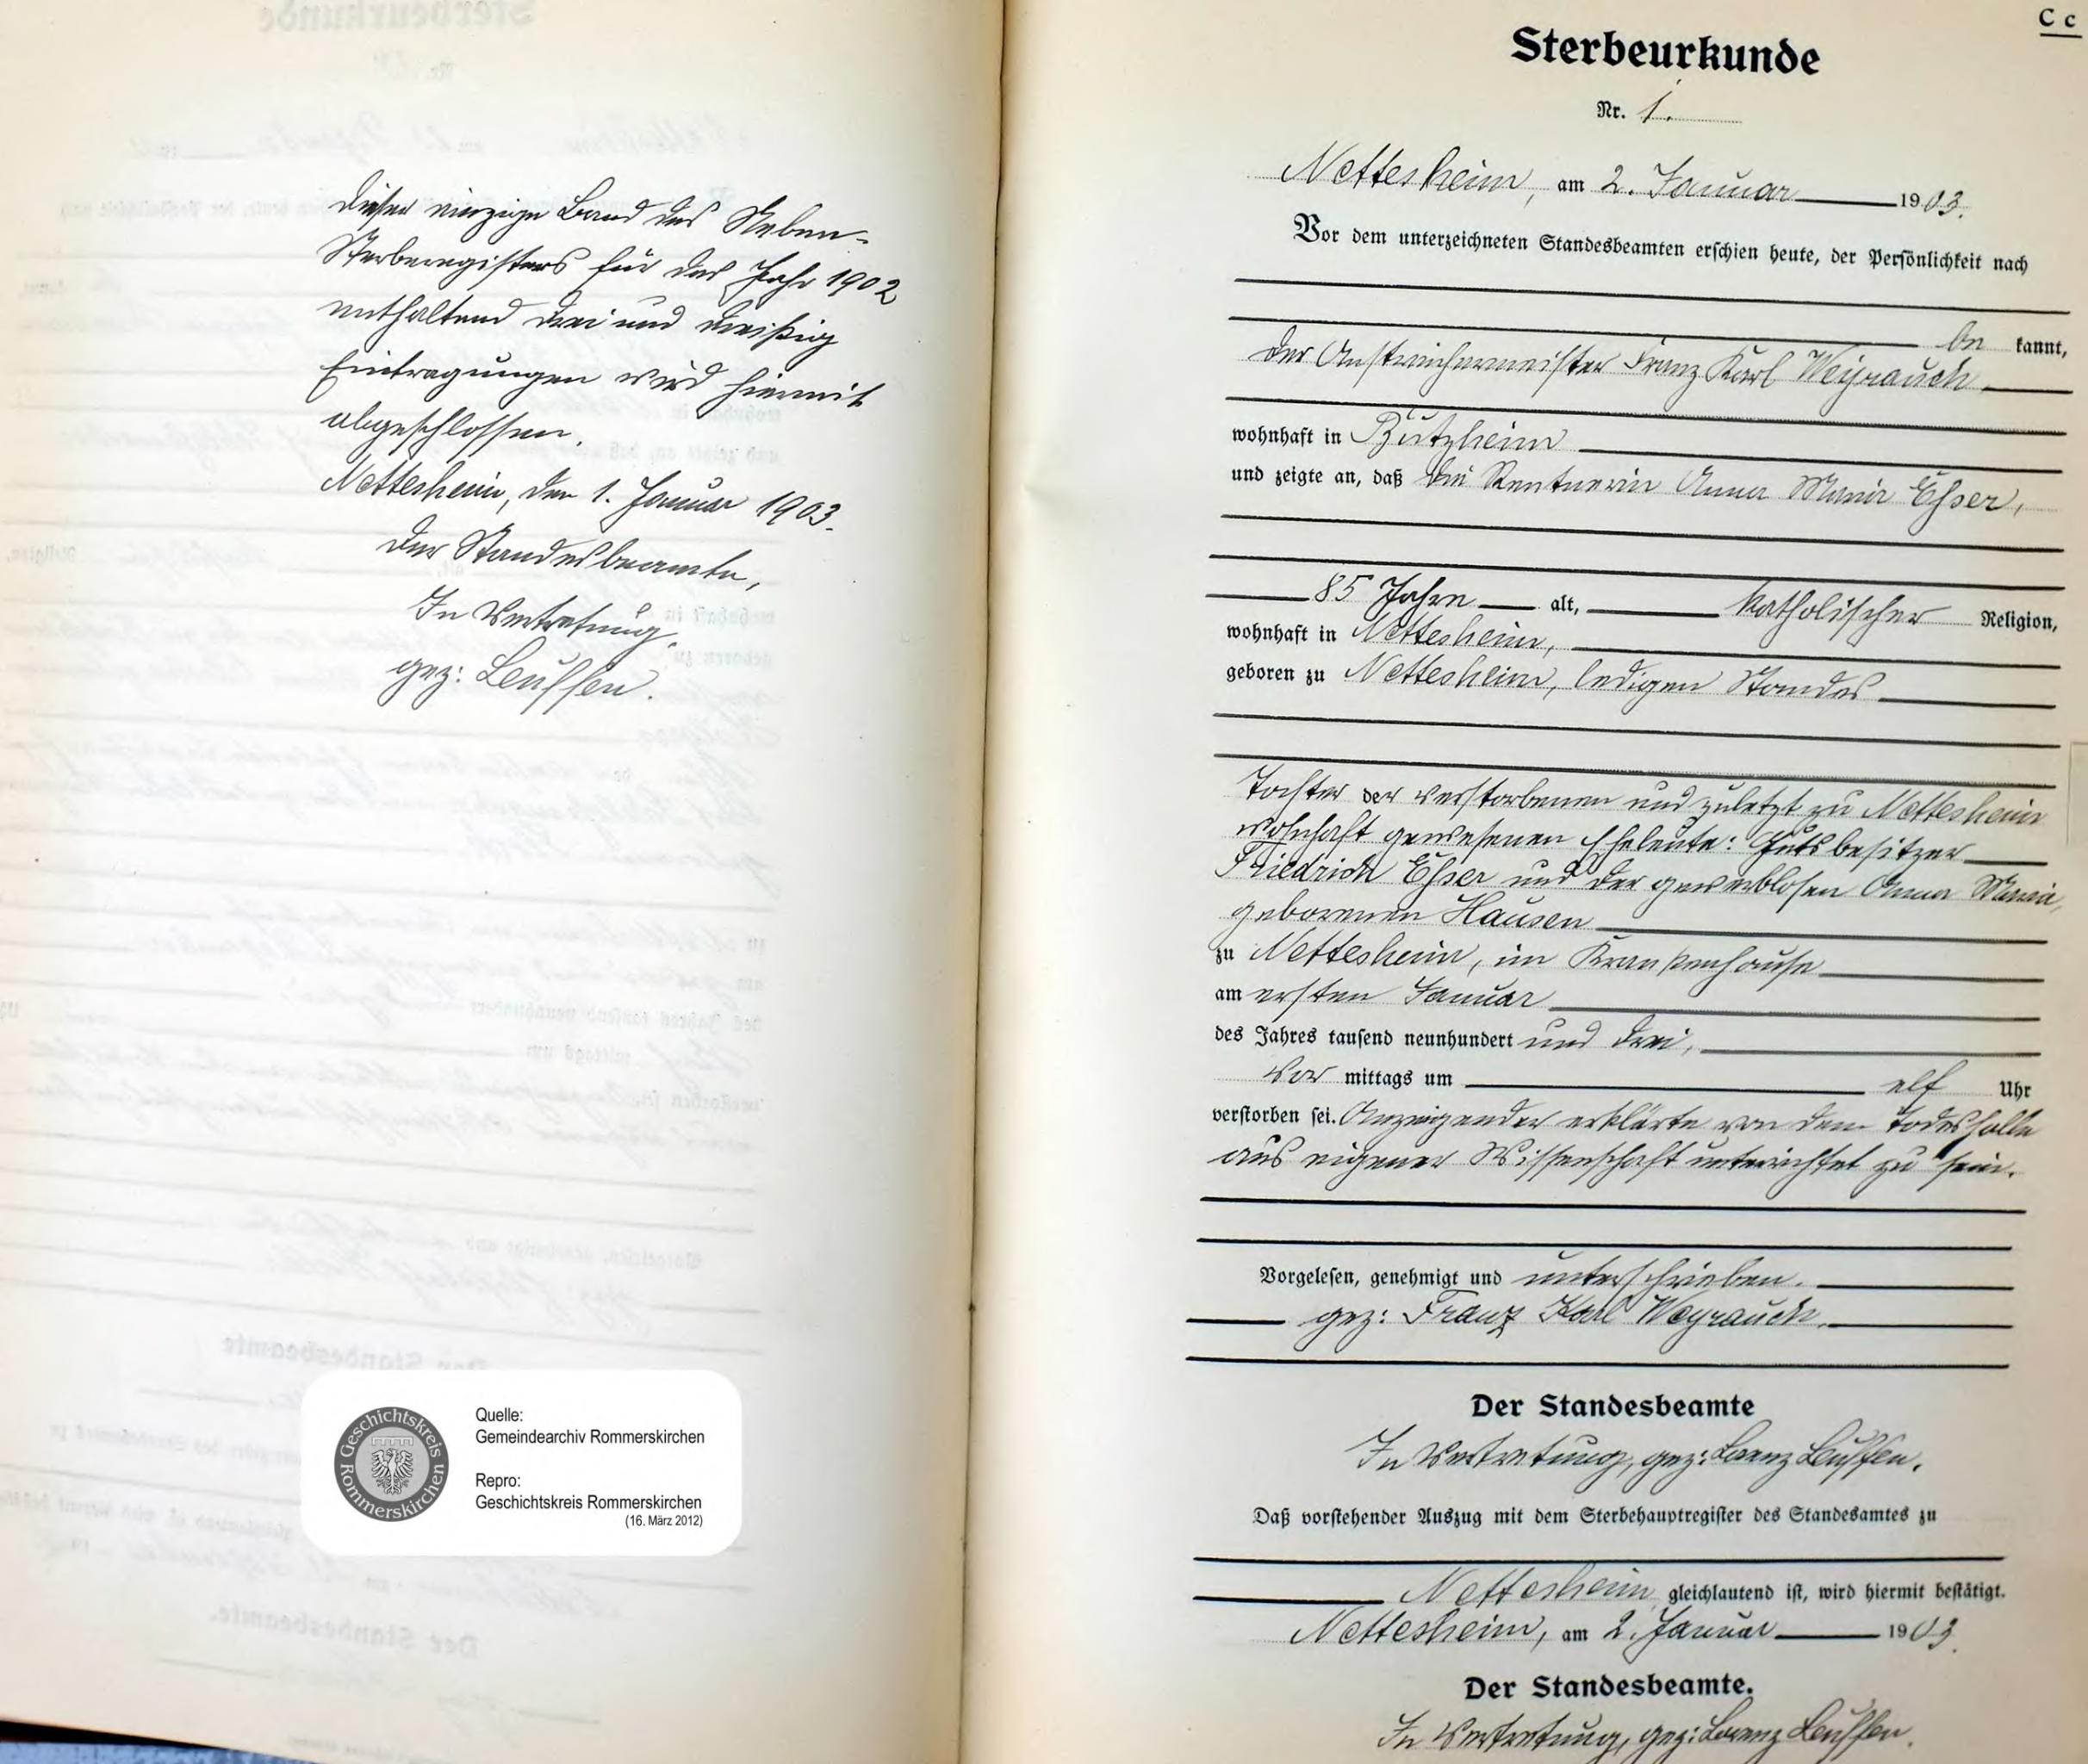 Dieser einzige Band des Neben-
Sterberegisters für das Jahr 1902
enthaltend drei und dreißig
Eintragungen wird hiermit
abgeschlossen.
Nettesheim, den 1. Januar 1903.
Der Standesbeamte,
In Vertretung,
gez: Leuffen.
Quelle:
Gemeindearchiv Rommerskirchen
Repro:
Geschichtskreis Rommerskirchen
(16. März 2012)
Geschichtskreis
Rommerskirchen
C c
Sterbeurkunde
Nr. 1.
Nettesheim, am 2. Januar 1903.
Vor dem unterzeichneten Standesbeamten erschien heute, der Persönlichkeit nach
be kannt,
der Anstreichermeister Franz Karl Weyrauch
wohnhaft in Butzheim
und zeigte an, daß die Rentnerin Anna Maria Esser,
85 Jahre alt, katholischer Religion,
wohnhaft in Nettesheim,
geboren zu Nettesheim, ledigen Standes
Tochter der verstorbenen und zuletzt zu Nettesheim
wohnhaft gewesenen Eheleute: Gutsbesitzer
Friedrich Esser und der gewerblosen Anna Maria,
geborenen Hausen
zu Nettesheim, im Krankenhause
am ersten Januar
des Jahres tausend neunhundert und drei,
Vor mittags um elf Uhr
verstorben sei. Anzeigender erklärte von dem Todesfalle
aus eigener Wissenschaft unterrichtet zu sein.
Vorgelesen, genehmigt und unterschrieben.
gez: Franz Karl Weyrauch.
Der Standesbeamte
In Vertretung, gez: Lorenz Leuffen.
Daß vorstehender Auszug mit dem Sterbehauptregister des Standesamtes zu
Nettesheim gleichlautend ist, wird hiermit bestätigt.
Nettesheim, am 2. Januar 1903.
Der Standesbeamte.
In Vertretung, gez: Lorenz Leuffen.